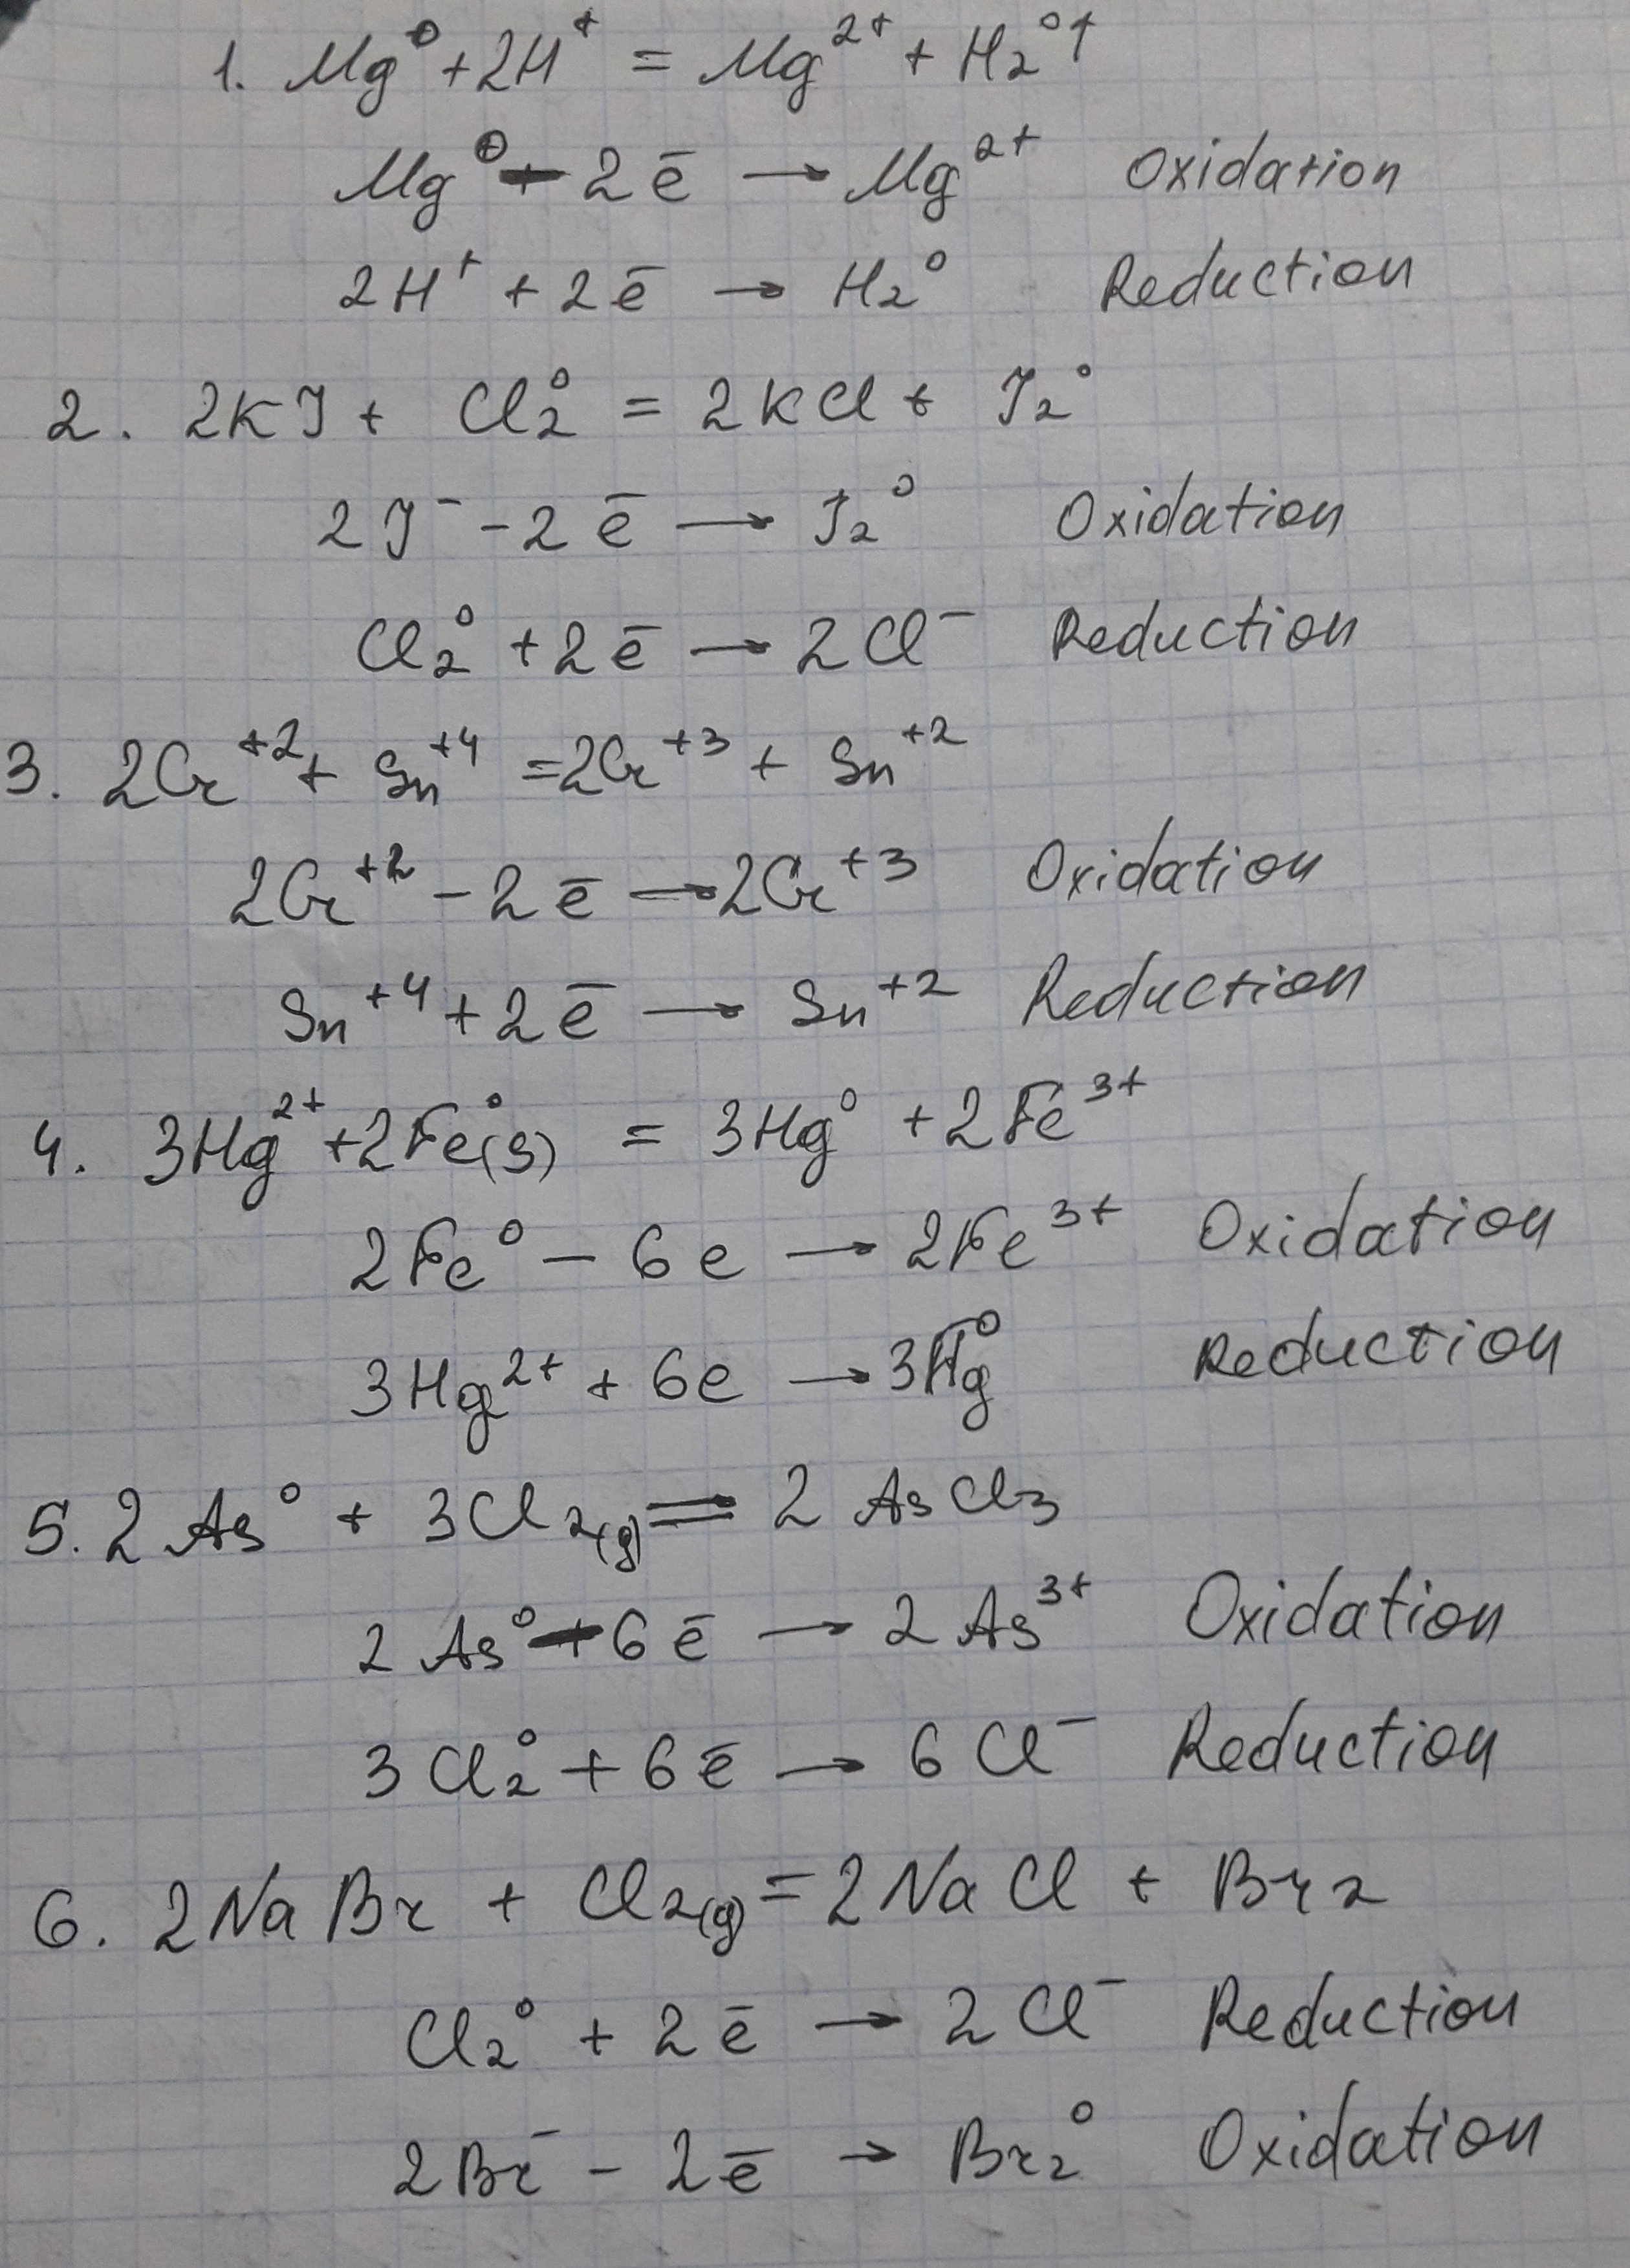 1. Mg⁰ + 2H⁺ = Mg²⁺ + H₂⁰↑
Mg⁰ - 2ē → Mg²⁺ Oxidation
2H⁺ + 2ē → H₂⁰ Reduction
2. 2KJ + Cl₂⁰ = 2KCl + J₂⁰
2J⁻ - 2ē → J₂⁰ Oxidation
Cl₂⁰ + 2ē → 2Cl⁻ Reduction
3. 2Cr⁺² + Sn⁺⁴ = 2Cr⁺³ + Sn⁺²
2Cr⁺² - 2ē → 2Cr⁺³ Oxidation
Sn⁺⁴ + 2ē → Sn⁺² Reduction
4. 3Hg²⁺ + 2Fe⁰(s) = 3Hg⁰ + 2Fe³⁺
2Fe⁰ - 6e → 2Fe³⁺ Oxidation
3Hg²⁺ + 6e → 3Hg⁰ Reduction
5. 2As⁰ + 3Cl₂(g) = 2AsCl₃
2As⁰ - 6ē → 2As³⁺ Oxidation
3Cl₂⁰ + 6ē → 6Cl⁻ Reduction
6. 2NaBr + Cl₂(g) = 2NaCl + Br₂
Cl₂⁰ + 2ē → 2Cl⁻ Reduction
2Br⁻ - 2ē → Br₂⁰ Oxidation